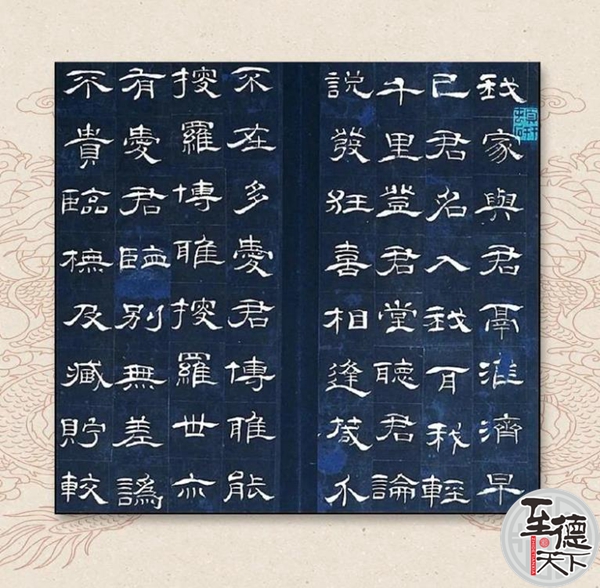 我家與君鬲淮濟早
已君名入我耳我輕
千里登君堂聽君論
說發狂喜相逢
不在多愛君博雅能
搜羅博雅搜羅世亦
有愛君臨別無差譌
不貴臨橅及藏貯較
至德天下